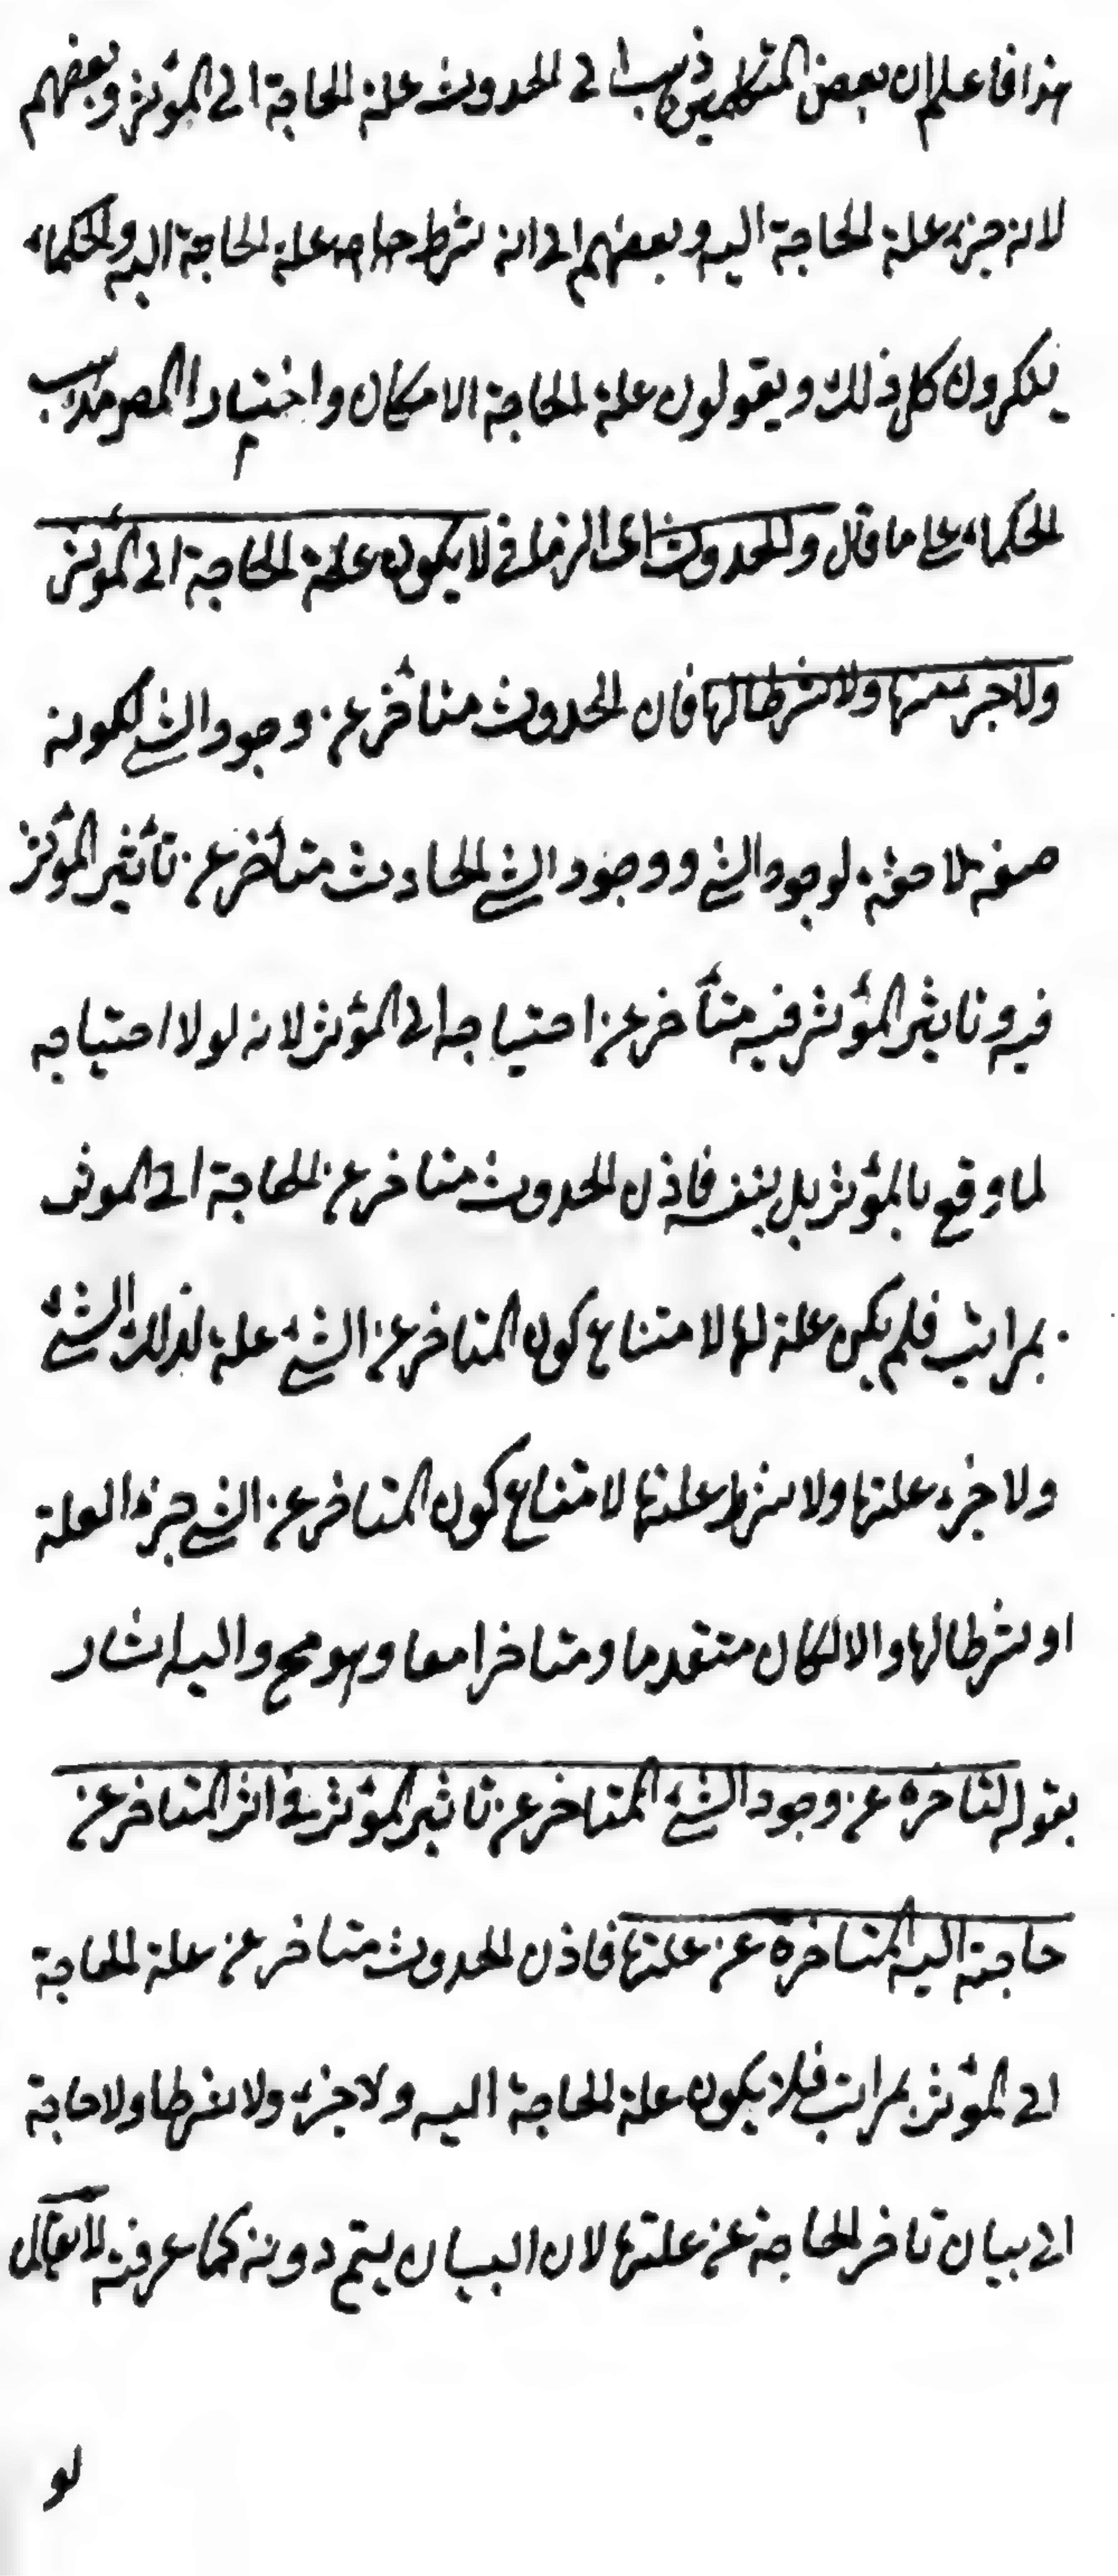 هذا فاعلم ان بعض المتكلمين ذهب الى الحدوث علة الحاجة الى المؤثر وبعضهم
لانه جزء علة الحاجة اليه وبعضهم الى انه شرط علة الحاجة اليه والحكماء
ينكرون كل ذلك ويقولون علة الحاجة الامكان واختيار المصر مذهب
الحكماء على ما قال والحدوث اى الزمانى لا يكون علة الحاجة الى المؤثر
ولا جزء منها ولا شرطا لها فان الحدوث متأخر عن وجود الشئ لكونه
صفة لاحقة لوجود الشئ ووجود الشئ الحادث متأخر عن تأثير المؤثر
فيه وتاثير المؤثر فيه متأخر عن احتياجه الى المؤثر لانه لولا احتياجه
لما وقع بالمؤثر بل بنفسه فاذن الحدوث متاخر عن الحاجة الى الموثر
بمراتب فلم يكن علة لها لامتناع كون المتاخر عن الشئ علة لذلك الشئ
ولا جزء علتها ولا شرط علتها لامتناع كون المتاخر عن الشئ جزء العلة
او شرطا لها والا لكان متقدما ومتاخرا معا وهو مح واليه اشار
بقوله لتاخره عن وجود الشئ المتاخر عن تاثير المؤثر فى اثر المتاخر عن
حاجته اليه المتاخرة عن علتها فاذن الحدوث متاخر عن علة الحاجة
الى المؤثر بمراتب فلا يكون علة الحاجة اليه ولا جزء ولا شرطا ولا حاجة
الى بيان تاخر الحاجة عن علتها لان البيان يتم دونه كما عرفته لا يقال
لو